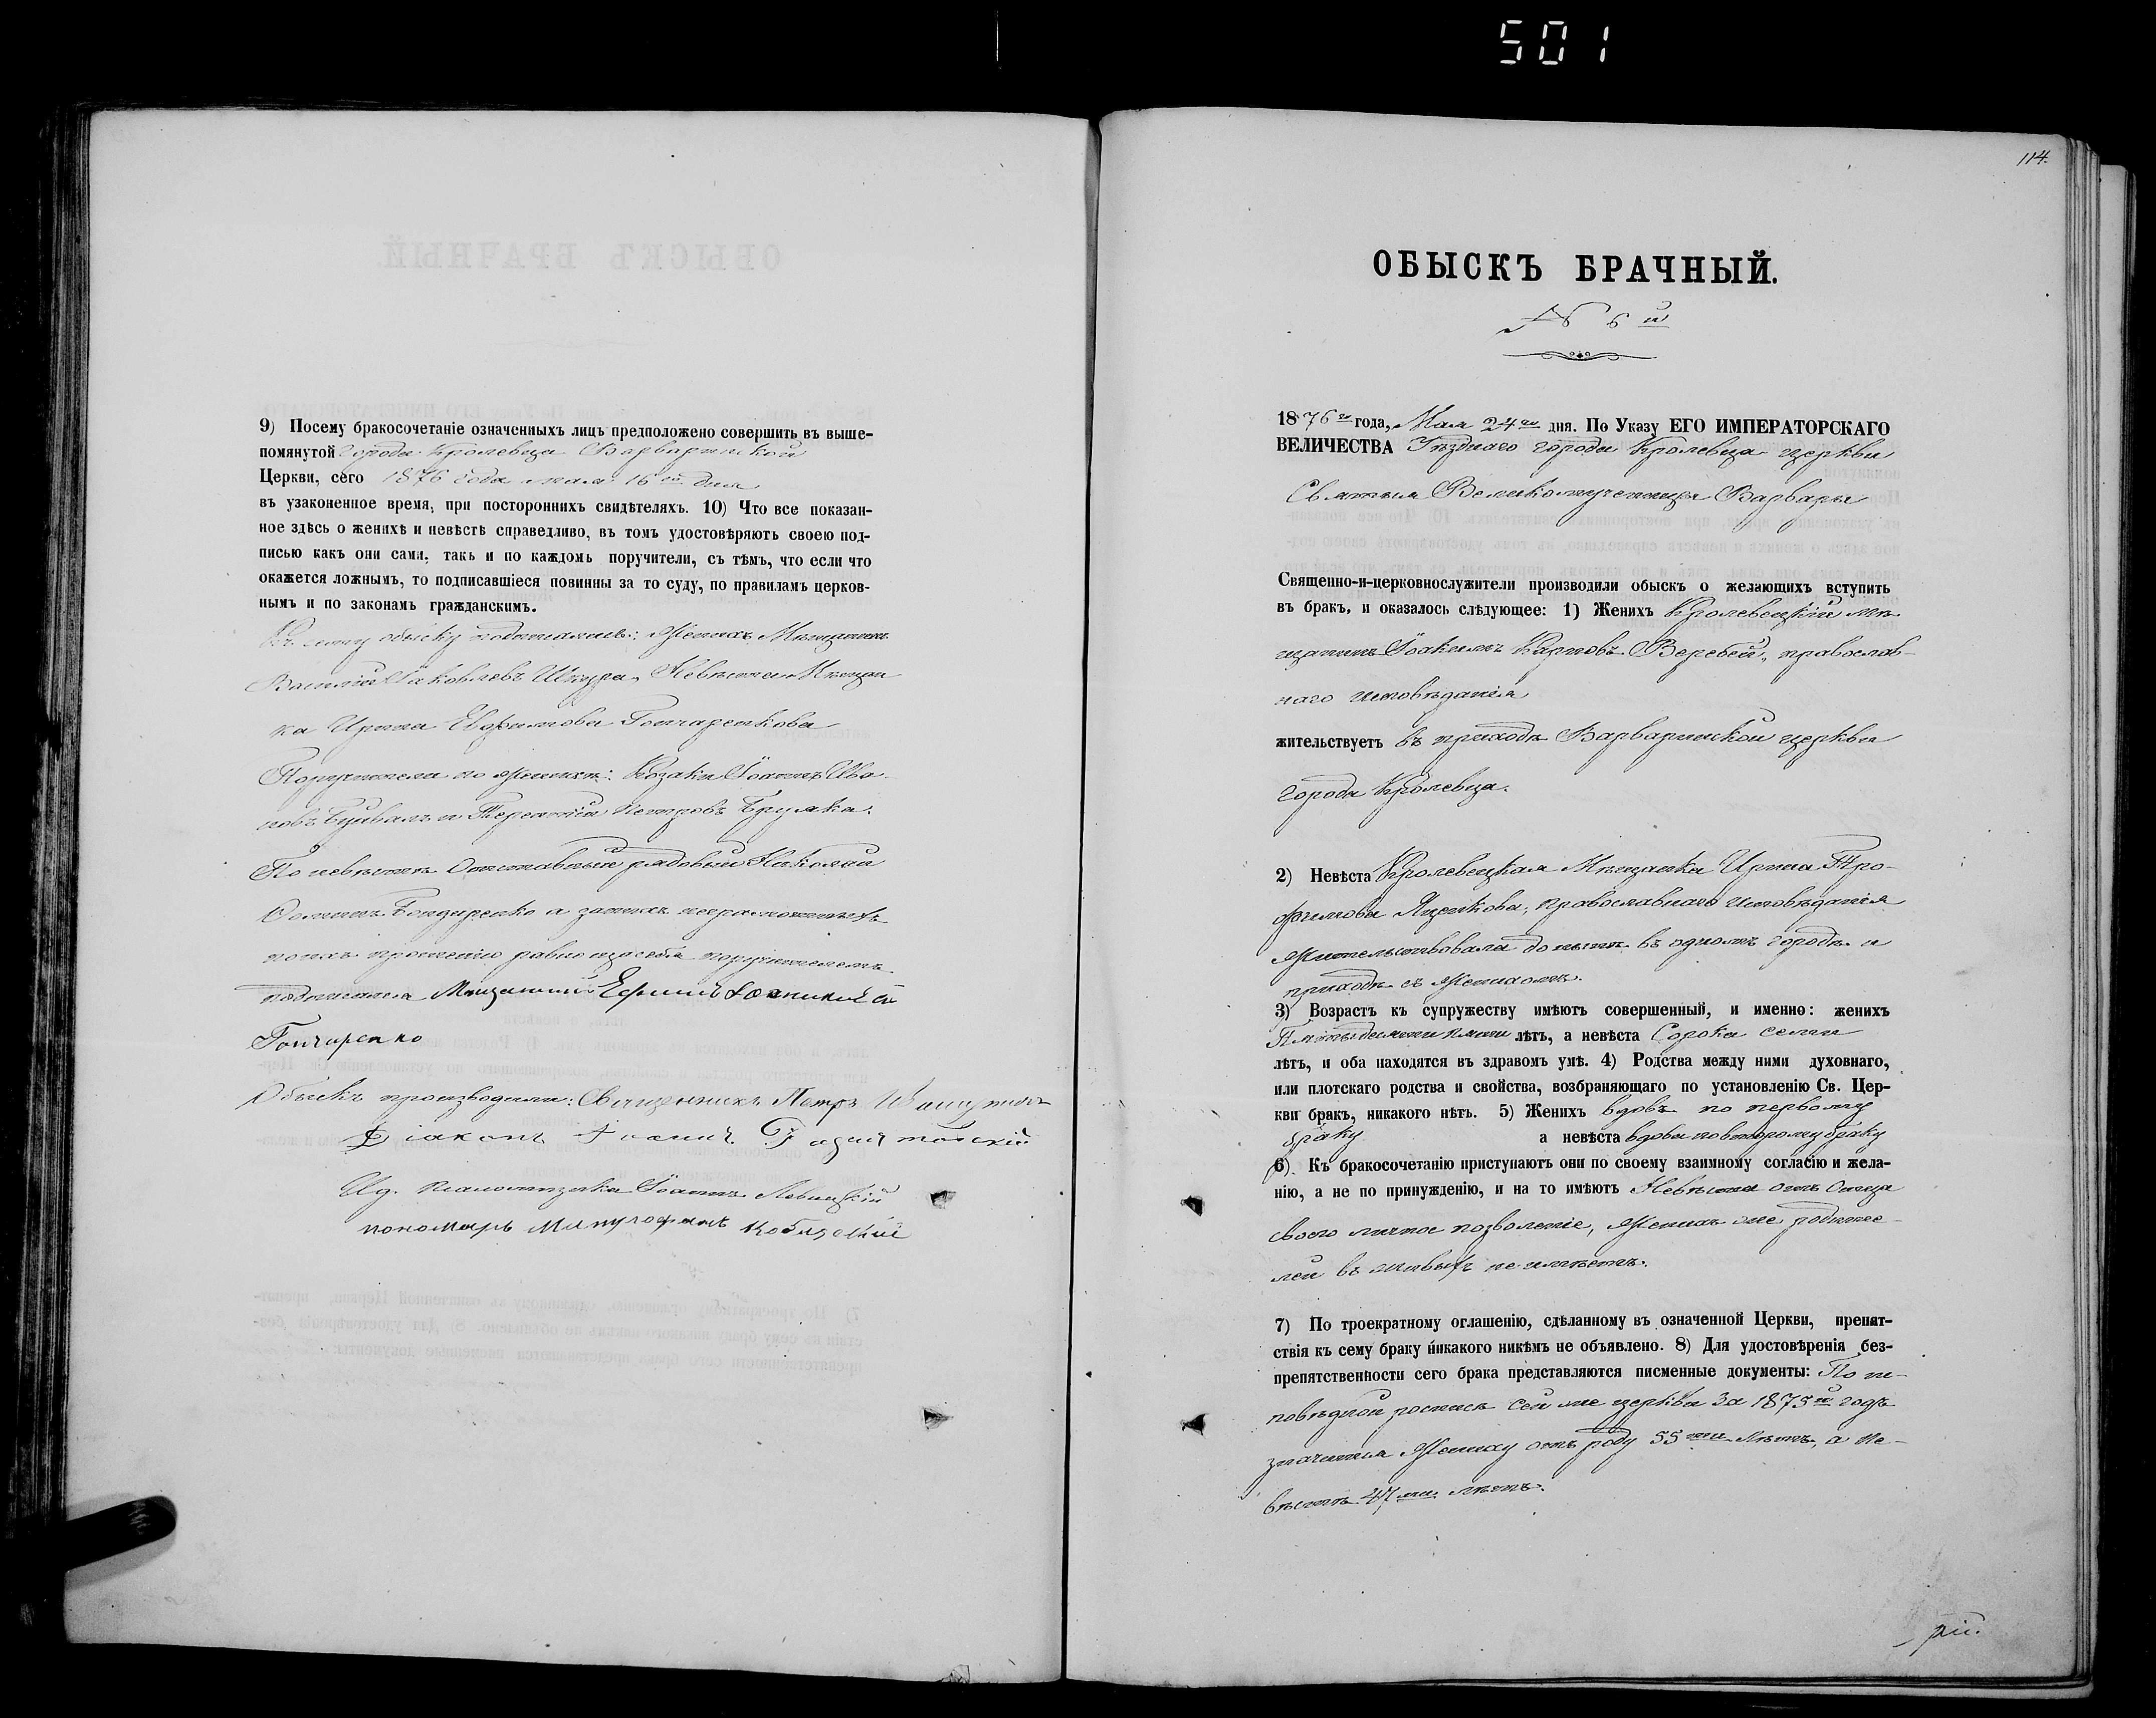 501
9) Посему бракосочетаніе означенныхъ лицъ предположено совершить въ выше-
помянутой Города Кролевца Варваринской
Церкви, сего 1876 года мая 16го дня
въ узаконенное время, при постороннихъ свидѣтеляхъ. 10) Что все показан-
ное здѣсь о женихѣ и невѣстѣ справедливо, въ томъ удостовѣряютъ своею под-
писью какъ они сами, такъ и по каждомъ поручители, съ тѣмъ, что если что
окажется ложнымъ, то подписавшіеся повинны за то суду, по правиламъ церков-
нымъ и по законамъ гражданскимъ.
Къ сему обыску подписались: Женихъ Мѣщанинъ
Василій Іаковлевъ Шкура, Невѣста Мѣщан
ка Ирина Евфимова Гончаренкова
Поручители по женихѣ: Козаки Іоаннъ Ива
новъ и Терентій Петровъ
По невѣстѣ Отставный рядовый Николай
Бондаренко и за нихъ неграмотныхъ
по ихъ прошенію равно и за себя поручителемъ
подписался Мещанинъ Ефимъ
Гончаренко
Обыскъ производили: Священникъ Петръ
Діаконъ Іоаннъ
Ид. псаломщика Іоаннъ Левицкій
пономарь Митрофанъ
114.
ОБЫСКЪ БРАЧНЫЙ.
№ 6й
1876го года, Мая 24го дня. По Указу ЕГО ИМПЕРАТОРСКАГО
ВЕЛИЧЕСТВА Уѣзднаго города Кролевца церкви
Святыя Великомученицы Варвары
Священно-и-церковнослужители производили обыскъ о желающихъ вступить
въ бракъ, и оказалось слѣдующее: 1) Женихъ Кролевецкій мѣ
щанинъ Іоакимъ Карповъ Веребей, православ-
наго исповѣданія
жительствуетъ въ приходѣ Варваринской церкви
города Кролевца.
2) Невѣста Кролевецкая Мѣщанка Ирина Тро-
фимова Яценкова, православнаго исповѣданія
жительствовала до нынѣ въ одномъ городѣ и
приходѣ съ женихомъ.
3) Возрастъ къ супружеству имѣютъ совершенный, и именно: женихъ
Пятьдесяти пяти лѣтъ, а невѣста Сорока семи
лѣтъ, и оба находятся въ здравомъ умѣ. 4) Родства между ними духовнаго,
или плотскаго родства и свойства, возбраняющаго по установленію Св. Цер-
кви бракъ, никакого нѣтъ. 5) Женихъ вдовъ по первому
браку а невѣста вдова по второму браку
6) Къ бракосочетанію приступаютъ они по своему взаимному согласію и жела-
нію, а не по принужденію, и на то имѣютъ Невѣста отъ Отца
своего личное позволеніе, Женихъ же родите-
лей въ живыхъ не имѣетъ.
7) По троекратному оглашенію, сдѣланному въ означенной Церкви, препят-
ствія къ сему браку никакого никѣмъ не объявлено. 8) Для удостовѣренія без-
препятственности сего брака представляются писменные документы: По ис-
повѣдной росписи сей же церкви за 1875й годъ
значится Жениху отъ роду 55ти лѣтъ, а не-
вѣстѣ 47ми лѣтъ.